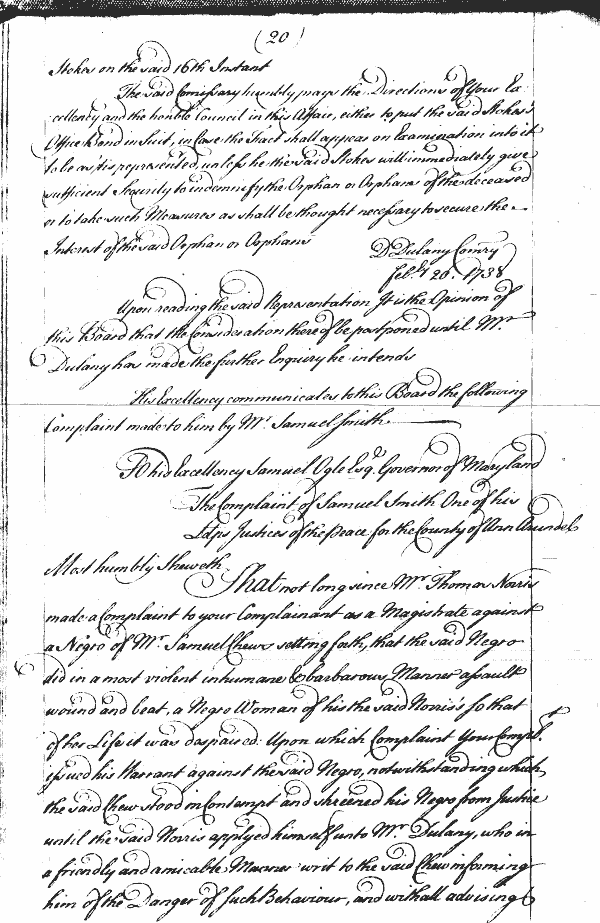 (20)
Stokes on the said 16th Instant
The said Comissary humbly prays the Directions of Your Ex
cellency and the honble Council in this Affair, either to put the said Stokes's
Office Bond in Suit, in Case the Fact shall appear on Examination into it
to be as 'tis represented, unless he the said Stokes will immediately give
sufficient Security to indemnify the Orphan or Orphans of the deceased
or to take such Measures as shall be thought necessary to secure the
Interest of the said Orphan or Orphans
D Dulany Comry
Febry 26. 1738
Upon reading the said Representation It is the Opinion of
this Board that the Consideration thereof be postponed until Mr
Dulany has made the further Enquiry he intends
His Excellency communicates to this Board the following
Complaint made to him by Mr Samuel Smith
To his Excellency Samuel Ogle Esqr Governor of Maryland
The Complaint of Samuel Smith One of his
Ldps Justices of the Peace for the County of Ann Arundel
Most humbly Sheweth
That not long since Mr Thomas Norris
made a Complaint to your Complainant as a Magistrate against
a Negro of Mr Samuel Chews setting forth, that the said Negro
did in a most violent inhumane & barbarous Manner assault
wound and beat, a Negro Woman of his the said Norris's so that
of her Life it was despaired. Upon which Complaint your Complt
issued his Warrant against the said Negro, notwithstanding which
the said Chew stood in Contempt and skreened his Negro from Justice
until the said Norris applyed himself unto Mr Dulany, who in
a friendly and amicable Manner writ to the said Chew informing
him of the Danger of such Behaviour, and withall advising